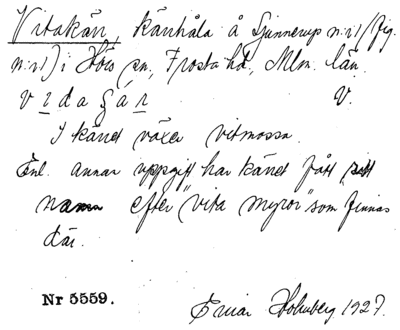 Vitakän, kärrhåla å Sjunnerup n:r 1/Jfg.
n:r 1) i Hörs sn, Frosta hd, Mlm. län.
v i d a ʃ ä r V.
I käret växer vitmossa.
Enl. annan uppgift har käret fått sitt
namn efter "vita myror" som finnas
där.
Nr 5559.
Einar Holmberg 1927.